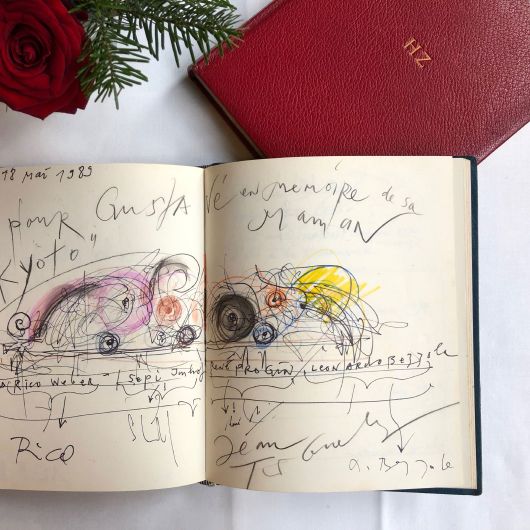 HZ
18 Mai 1989
pour Gustavé en memoire de sa
Maman
Kyoto"
Rico Weber" Sepi Imhof René PROGIN, LEONARDO BEZZOLA
Rico
Jean Tinguely